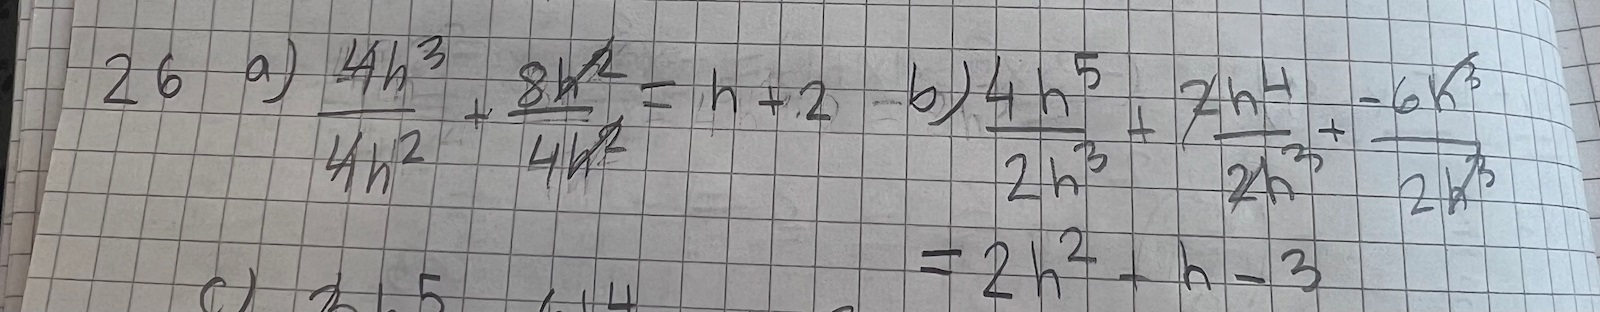 26 a) 4h³/4h² + 8h²/4h² = h + 2 b) 4h⁵/2h³ + 2h⁴/2h³ + -6h³/2h³
= 2h² + h - 3
c) 5 4